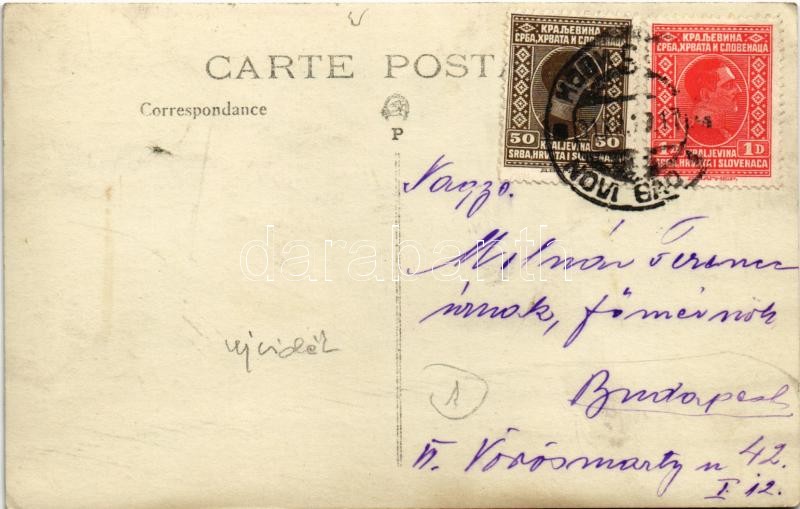 CARTE POSTA
Correspondance
P
КРАЉЕВИНА
СРБА, ХРВАТА И СЛОВЕНАЦА
50 50
KRALJEVINA
SRBA, HRVATA I SLOVENACA
КРАЉЕВИНА
СРБА, ХРВАТА И СЛОВЕНАЦА
1D
KRALJEVINA
SRBA, HRVATA I SLOVENACA
NOVI SAD
Nagys.
Molnár Ferenc
úrnak, főmérnök
Budapest
VI. Vörösmarty u 42.
I. 12.
ujvidék
1
darabanth